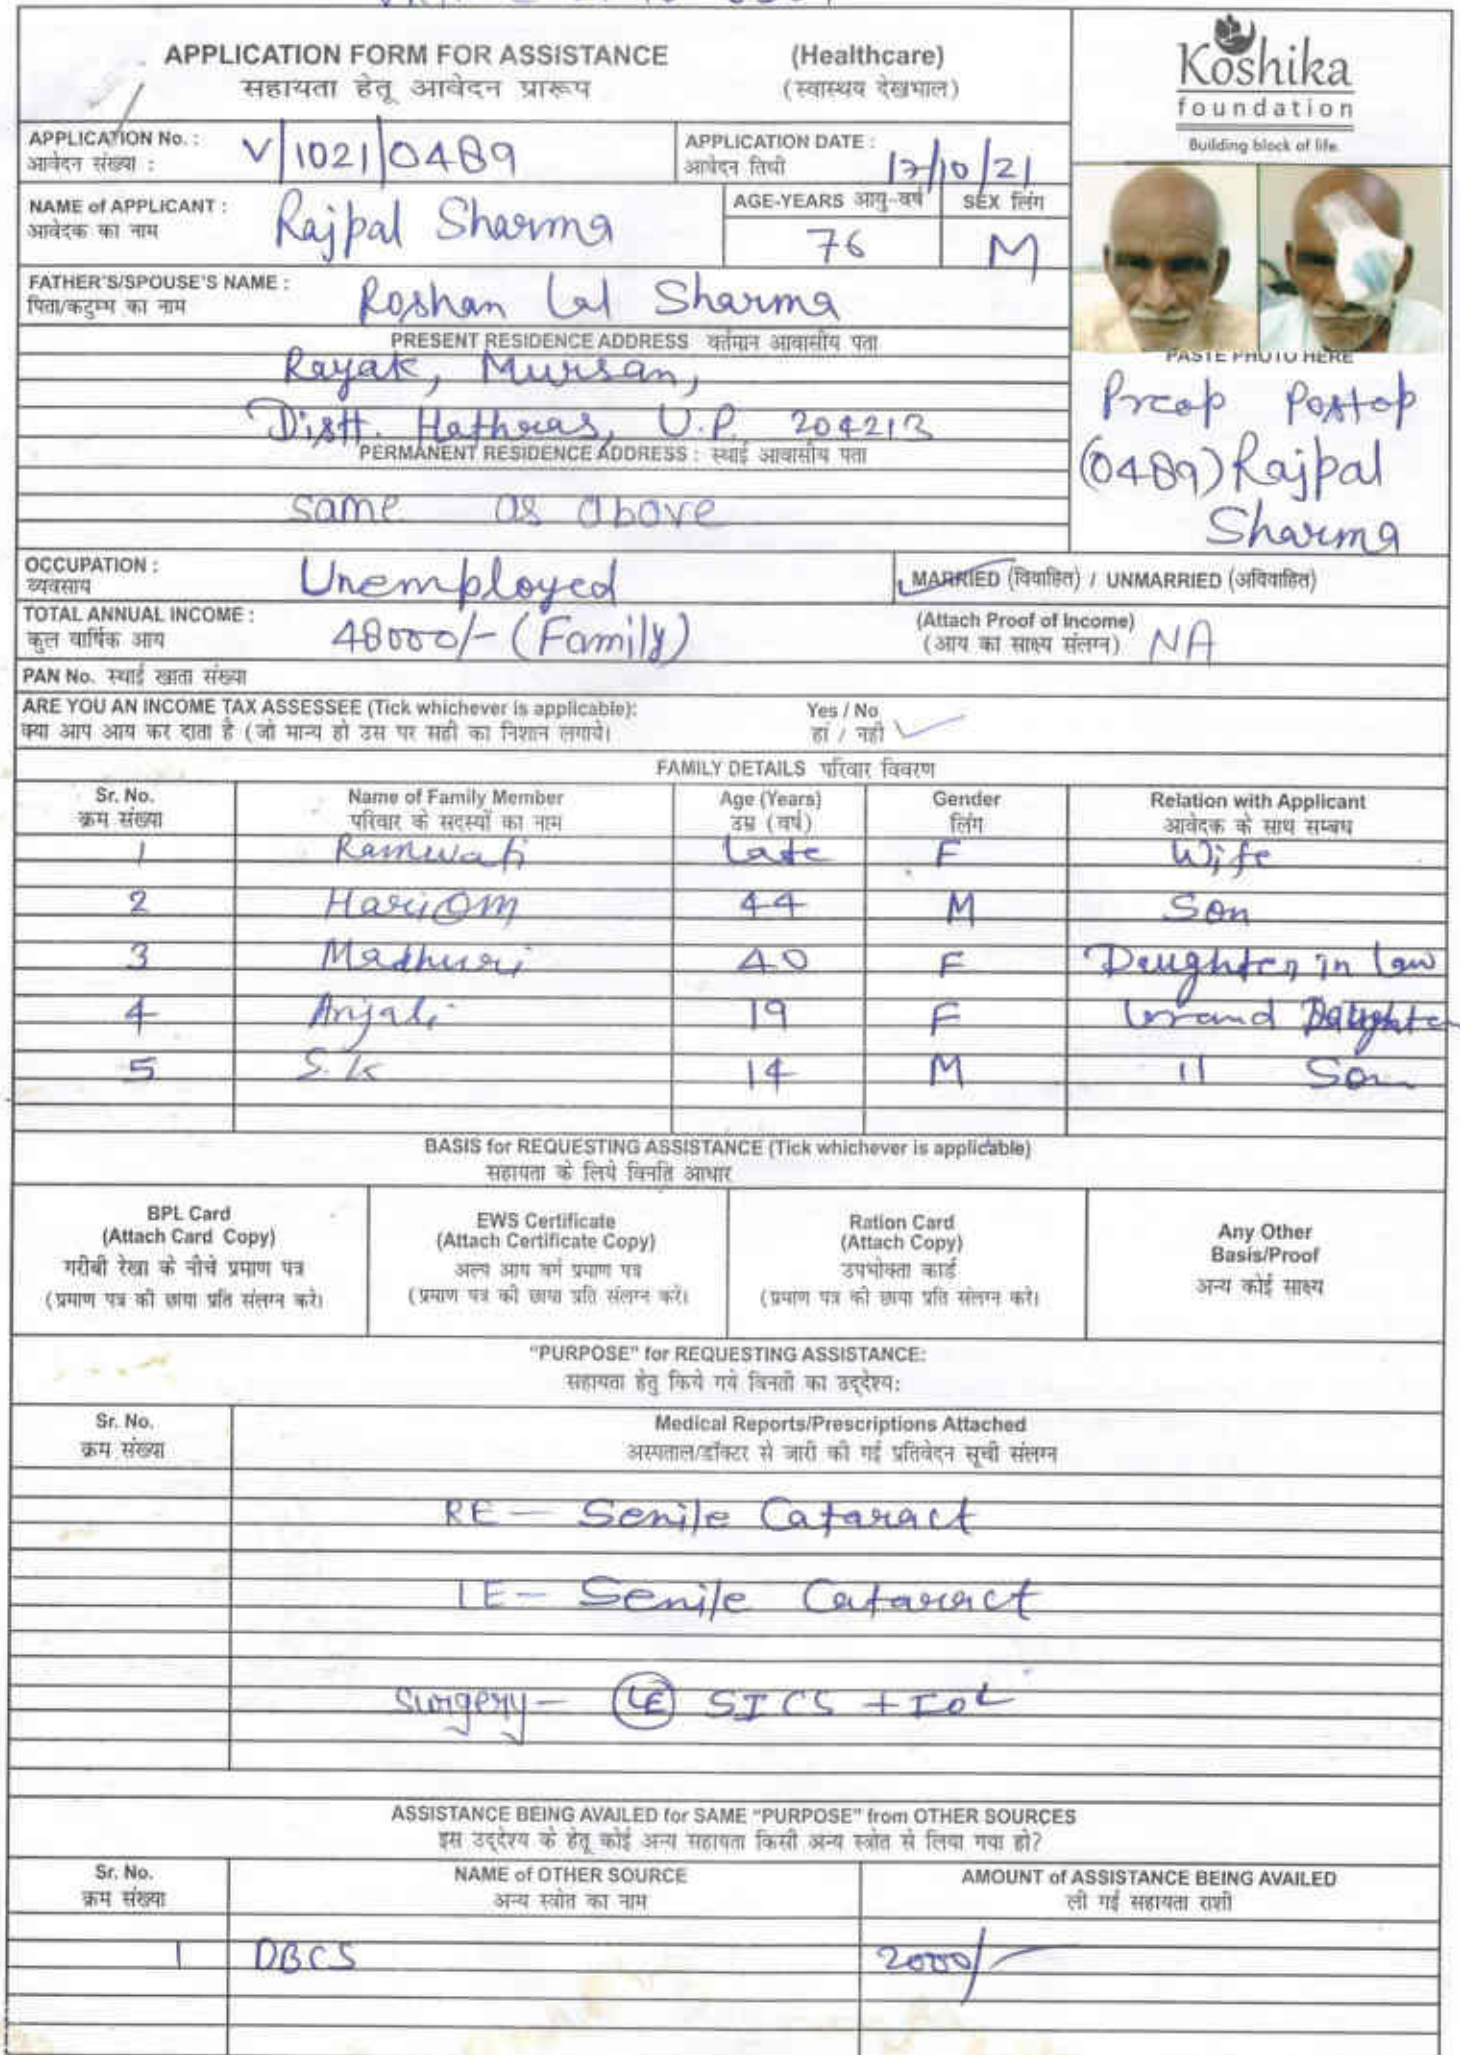 APPLICATION FORM FOR ASSISTANCE (Healthcare)
सहायता हेतू आवेदन प्रारूप (स्वास्थय देखभाल)
Koshika
foundation
Building block of life.
APPLICATION No. : V/1021/0489 APPLICATION DATE : 17/10/21
आवेदन संख्या : आवेदन तिथी
NAME of APPLICANT : Rajpal Sharma AGE-YEARS आयु-वर्ष 76 SEX लिंग M
आवेदक का नाम
FATHER'S/SPOUSE'S NAME : Roshan Lal Sharma
पिता/कटुम्भ का नाम
PRESENT RESIDENCE ADDRESS वर्तमान आवासीय पता
Rayak, Mursan,
Distt. Hathras, U.P. 204213
PERMANENT RESIDENCE ADDRESS : स्थाई आवासीय पता
same as above
PASTE PHOTO HERE
Preop Postop
(0489) Rajpal
Sharma
OCCUPATION : Unemployed MARRIED (विवाहित) / UNMARRIED (अविवाहित)
व्यवसाय
TOTAL ANNUAL INCOME : 48000/- (Family) (Attach Proof of Income) NA
कुल वार्षिक आय (आय का साक्ष्य संलग्न)
PAN No. स्थाई खाता संख्या
ARE YOU AN INCOME TAX ASSESSEE (Tick whichever is applicable): Yes / No
क्या आप आय कर दाता है (जो मान्य हो उस पर सही का निशान लगाये। हां / नही
FAMILY DETAILS परिवार विवरण
Sr. No. Name of Family Member Age (Years) Gender Relation with Applicant
क्रम संख्या परिवार के सदस्यों का नाम उम्र (वर्ष) लिंग आवेदक के साथ सम्बध
1 Ramwati Late F Wife
2 Hari Om 44 M Son
3 Madhuri 40 F Daughter in Law
4 Anjali 19 F Grand Daughter
5 S.K 14 M 11 Son
BASIS for REQUESTING ASSISTANCE (Tick whichever is applicable)
सहायता के लिये विनति आधार
BPL Card
(Attach Card Copy)
गरीबी रेखा के नीचे प्रमाण पत्र
(प्रमाण पत्र की छाया प्रति संलग्न करे।
EWS Certificate
(Attach Certificate Copy)
अल्प आय वर्ग प्रमाण पत्र
(प्रमाण पत्र की छाया प्रति संलग्न करे।
Ration Card
(Attach Copy)
उपभोक्ता कार्ड
(प्रमाण पत्र की छाया प्रति संलग्न करे।
Any Other
Basis/Proof
अन्य कोई साक्ष्य
"PURPOSE" for REQUESTING ASSISTANCE:
सहायता हेतु किये गये विनती का उद्देश्य:
Sr. No. Medical Reports/Prescriptions Attached
क्रम संख्या अस्पताल/डॉक्टर से जारी की गई प्रतिवेदन सूची संलग्न
RE - Senile Cataract
LE - Senile Cataract
Surgery - LE SICS + IOL
ASSISTANCE BEING AVAILED for SAME "PURPOSE" from OTHER SOURCES
इस उद्देश्य के हेतू कोई अन्य सहायता किसी अन्य स्त्रोत से लिया गया हो?
Sr. No. NAME of OTHER SOURCE AMOUNT of ASSISTANCE BEING AVAILED
क्रम संख्या अन्य स्त्रोत का नाम ली गई सहायता राशी
1 DBCS 2000/-